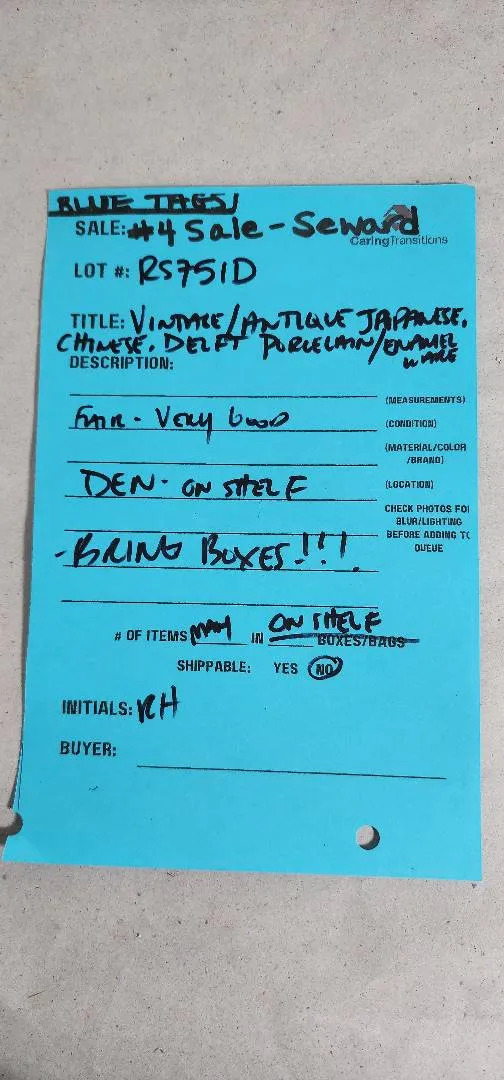 BLUE TAGS!
SALE: #4 Sale - Seward
CaringTransitions
LOT #: RS751D
TITLE: VINTAGE/ANTIQUE JAPANESE,
CHINESE, DELFT PORCELAIN/ENAMEL
WARE
DESCRIPTION:
(MEASUREMENTS)
FAIR - VERY GOOD (CONDITION)
(MATERIAL/COLOR
/BRAND)
DEN - ON SHELF (LOCATION)
CHECK PHOTOS FO
BLUR/LIGHTING
BEFORE ADDING TO
QUEUE
- BRING BOXES!!!
# OF ITEMS MANY IN ON SHELF BOXES/BAGS
SHIPPABLE: YES NO
INITIALS: RH
BUYER: